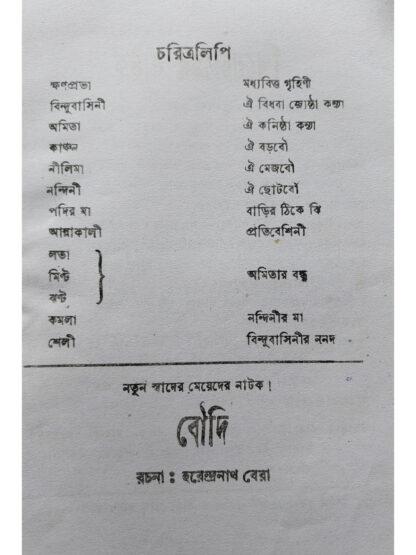 চরিত্রলিপি
ক্ষণপ্রভা মধ্যবিত্ত গৃহিণী
বিন্দুবাসিনী ঐ বিধবা জ্যেষ্ঠা কন্যা
অমিতা ঐ কনিষ্ঠা কন্যা
কাঞ্চন ঐ বড়বৌ
নীলিমা ঐ মেজবৌ
নন্দিনী ঐ ছোটবৌ
পদির মা বাড়ির ঠিকে ঝি
আন্নাকালী প্রতিবেশিনী
লতা
মিণ্টু
ঝণ্টু
অমিতার বন্ধু
কমলা নন্দিনীর মা
শেলী বিন্দুবাসিনীর ননদ
নতুন স্বাদের মেয়েদের নাটক !
বৌদি
রচনা : হরেন্দ্রনাথ বেরা